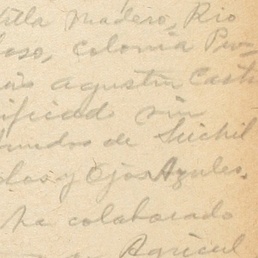 Villa Madero, Rio
oso, colonia Pur
agustin Casti
ificad sin
mundos de Suchil
olas y Ojos Azules.
ha colaborado
de Agricul